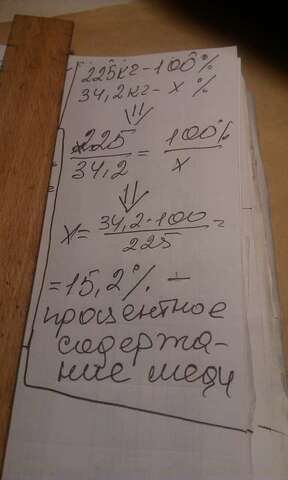 225кг - 100%
34,2кг - x %
⇓
225/34,2 = 100%/x
⇓
x = 34,2·100/225 =
= 15,2% -
процентное
содержа-
ние меди